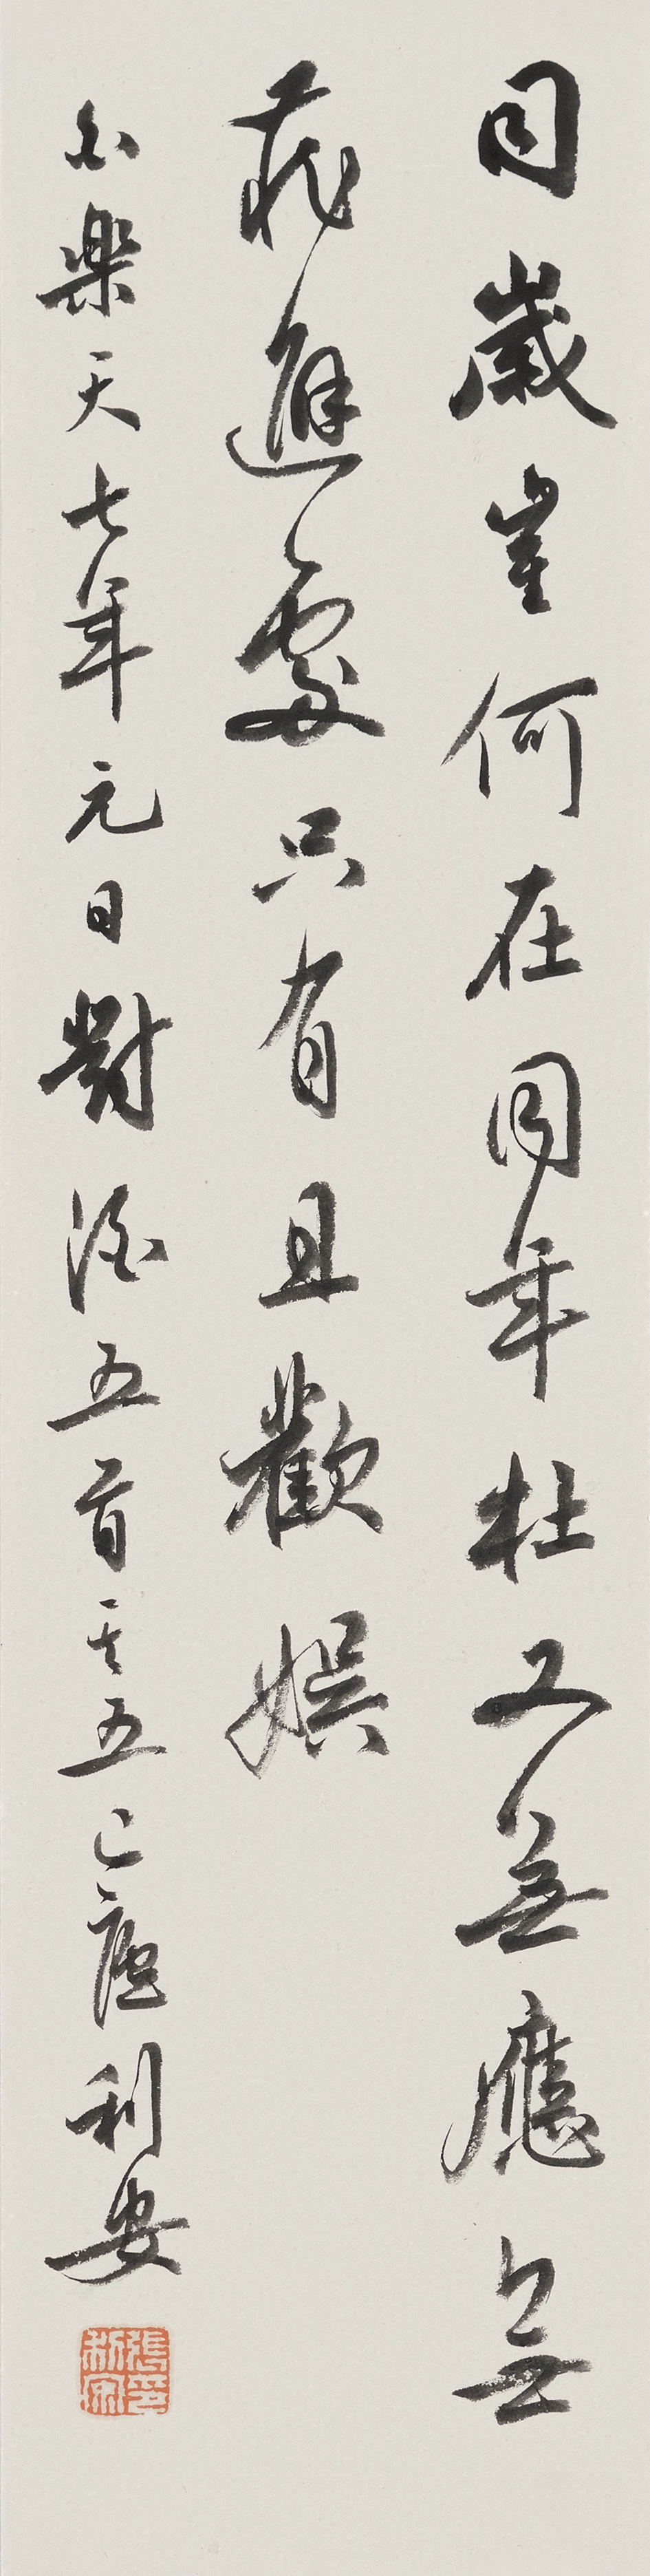 同歲崔何在同年杜又無應無
藏避處只有且歡娛
白樂天七年元日對酒五首其五廬利安
張印利安